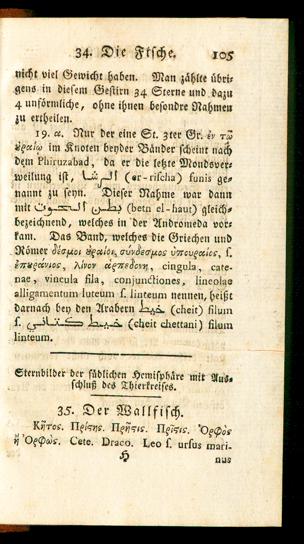 34. Die Fische. 105
nicht viel Gewicht haben. Man zählte übri-
gens in diesem Gestirn 34 Sterne und dazu
4 unförmliche, ohne ihnen besondre Nahmen
zu ertheilen.
19. α. Nur der eine St. 3ter Gr. ἐν τῷ
ὀυραίῳ im Knoten beyder Bänder scheint nach
dem Phiruzabad, da er die letzte Mondsver-
weilung ist, الرشا (er-rischa) funis ge-
nannt zu seyn. Dieser Nahme war dann
mit بطن الحوت (betn el-haut) gleich-
bezeichnend, welches in der Andromeda vor-
kam. Das Band, welches die Griechen und
Römer δέσμοι ὀυραίοι, σύνδεσμος ὑπουραίος, s.
ἐπουράνιος, λίνον ἁρπεδονη, cingula, cate-
nae, vincula fila, conjunctiones, lineolae
alligamentum luteum s. linteum nennen, heißt
darnach bey den Arabern خيط (cheit) filum
s. خيط كتاني (cheit chettani) filum
linteum.
Sternbilder der südlichen Hemisphäre mit Aus-
schluß des Thierkreises.
35. Der Wallfisch.
Κῆτος. Πρίςης. Πρῆςις. Πρῖςις. Ὀρφὸς
ἢ Ὀρφώς. Cete. Draco. Leo s. ursus mari-
H nus